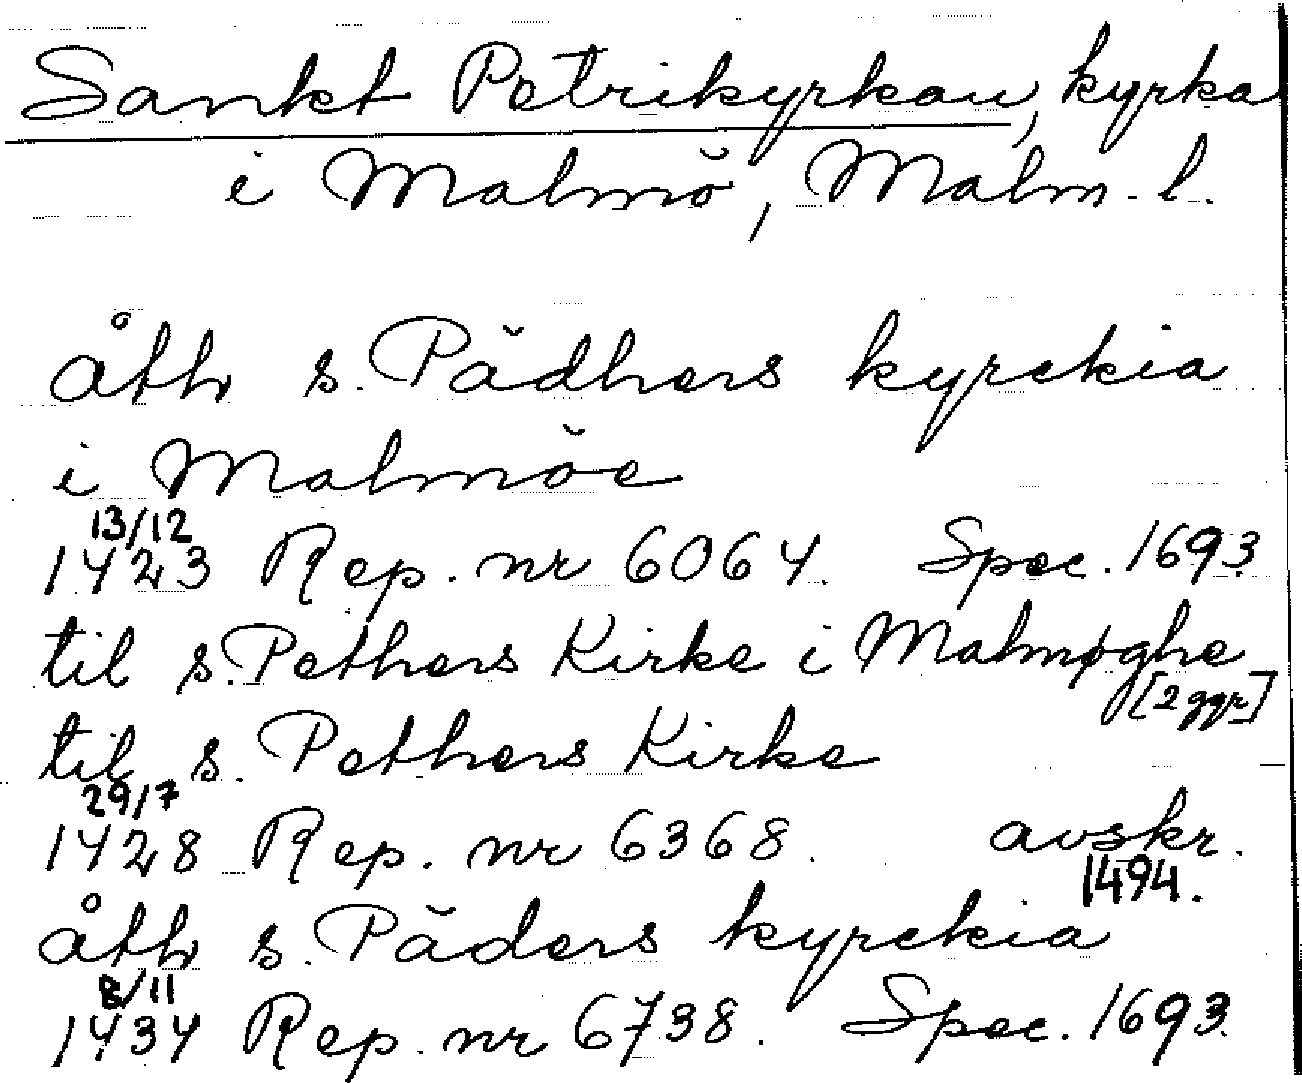 Sankt Petrikyrkan, kyrka
i Malmö, Malm. l.
åth s. Pädhers kyrckia
i Malmöe
13/12
1423 Rep. nr 6064. Spec. 1693
til s. Pethers Kirke i Malmøghe
[2 ggr]
til s. Pethers Kirke
29/7
1428 Rep. nr 6368. avskr.
1494.
åth s. Päders kyrckia
8/11
1434 Rep. nr 6738. Spec. 1693.